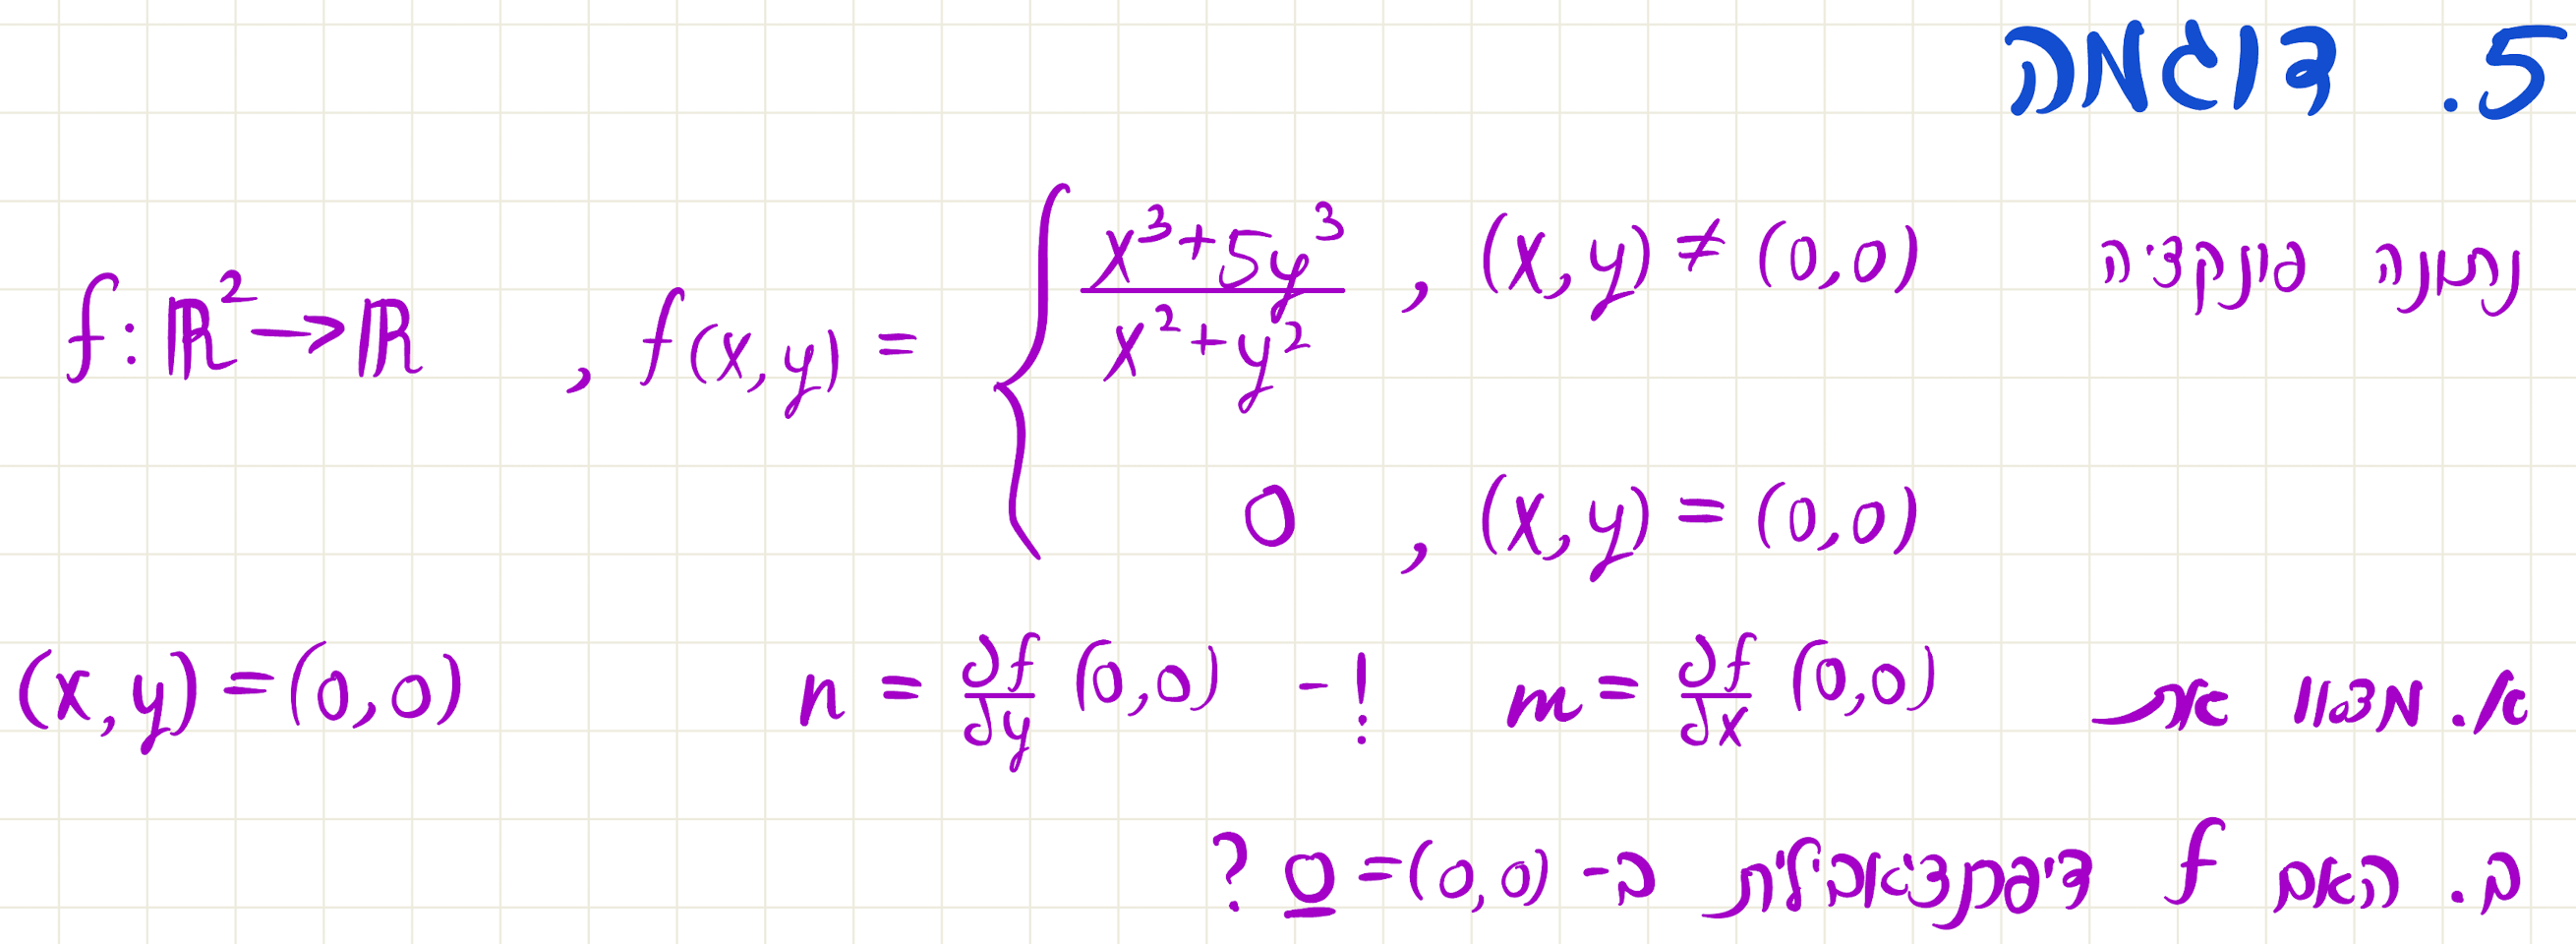 5. דוגמה
נתונה פונקציה f: ℝ² → ℝ , f(x,y) = { (x³+5y³)/(x²+y²) , (x,y) ≠ (0,0)
0 , (x,y) = (0,0)
א. מצאו את m = ∂f/∂x (0,0) ! - n = ∂f/∂y (0,0) (x,y) = (0,0)
ב. האם f דיפרנציאבילית ב- 0 = (0,0) ?